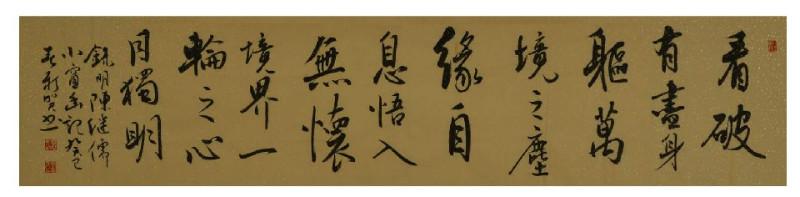 看破
有盡身
軀萬
境之塵
緣自
息悟入
無懷
境界一
輪之心
月獨明
錄明陳继儒
小窗幽記癸巳